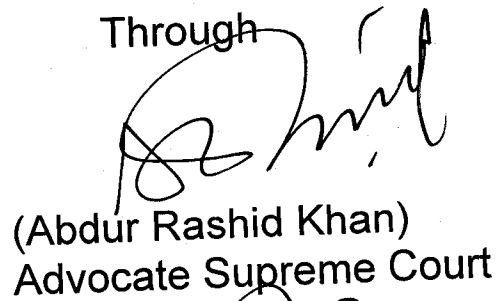 Through
(Abdur Rashid Khan)
Advocate Supreme Court